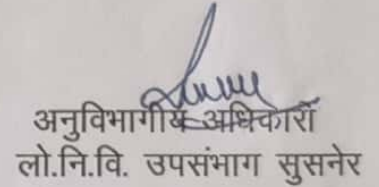 अनुविभागीय अधिकारी
लो.नि.वि. उपसंभाग सुसनेर